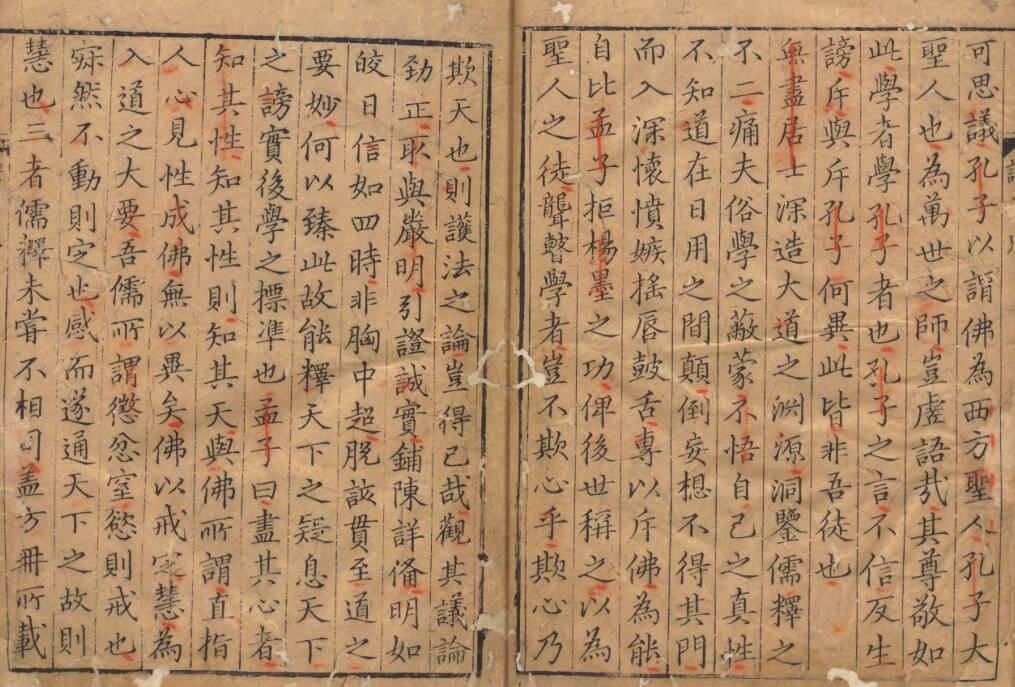 可思議孔子以謂佛為西方聖人孔子大
聖人也為萬世之師豈虛語㢤其尊敬如
此學者學孔子者也孔子之言不信反生
謗斥與斥孔子何異此皆非吾徒也
無盡居士深造大道之淵源洞鑒儒釋之
不二痛夫俗學之蔽蒙不悟自己之真性
不知道在日用之間顛倒妄想不得其門
而入深懷憤嫉搖唇鼓舌專以斥佛為能
自比孟子拒楊墨之功俾後世稱之以為
聖人之徒聾瞽學者豈不欺心乎欺心乃
欺天也則護法之論豈得已哉觀其議論
勁正取與嚴明引證誠實鋪陳詳俻明如
皎日信如四時非胸中超脫該貫至道之
要妙何以臻此故能釋天下之疑息天下
之謗實後學之標準也孟子曰盡其心者
知其性知其性則知其天與佛所謂直指
人心見性成佛無以異矣佛以戒定慧為
入道之大要吾儒所謂懲忿窒慾則戒也
寂然不動則定也感而遂通天下之故則
慧也三者儒釋未嘗不相同盖方冊所載